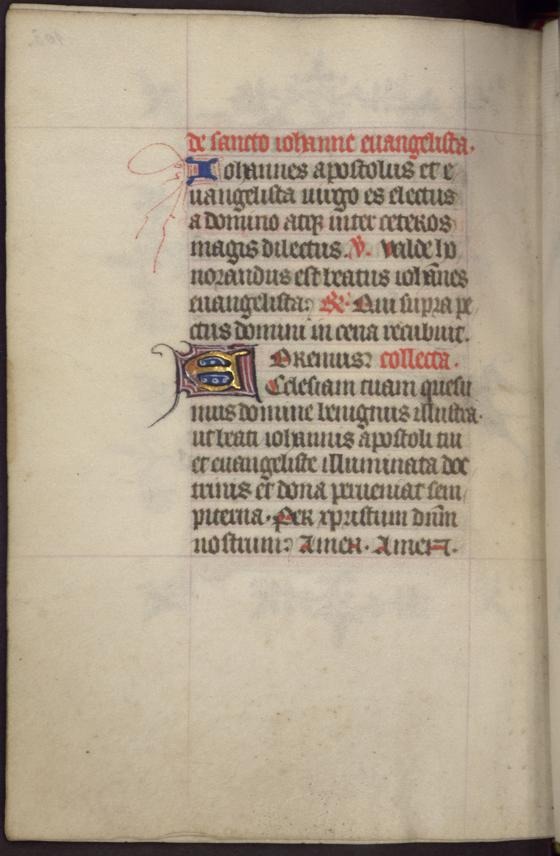 de sancto iohanne euangelista.
Iohannes apostolus et e
uangelista uirgo es electus
a domino atqꝫ inter ceteros
magis dilectus. V. valde ho
norandus est beatus ioha̅nes
euangelista: R. Qui supra pe
ctus domini in cena recubuit.
Oremus: collecta.
Ecclesiam tuam quesu
mus domine benignus illustra.
ut beati iohannis apostoli tui
et euangeliste illuminata doc
trinis et dona perueniat sem
piterna. Per xpristum dn̅m
nostrum: Amen. Amen.